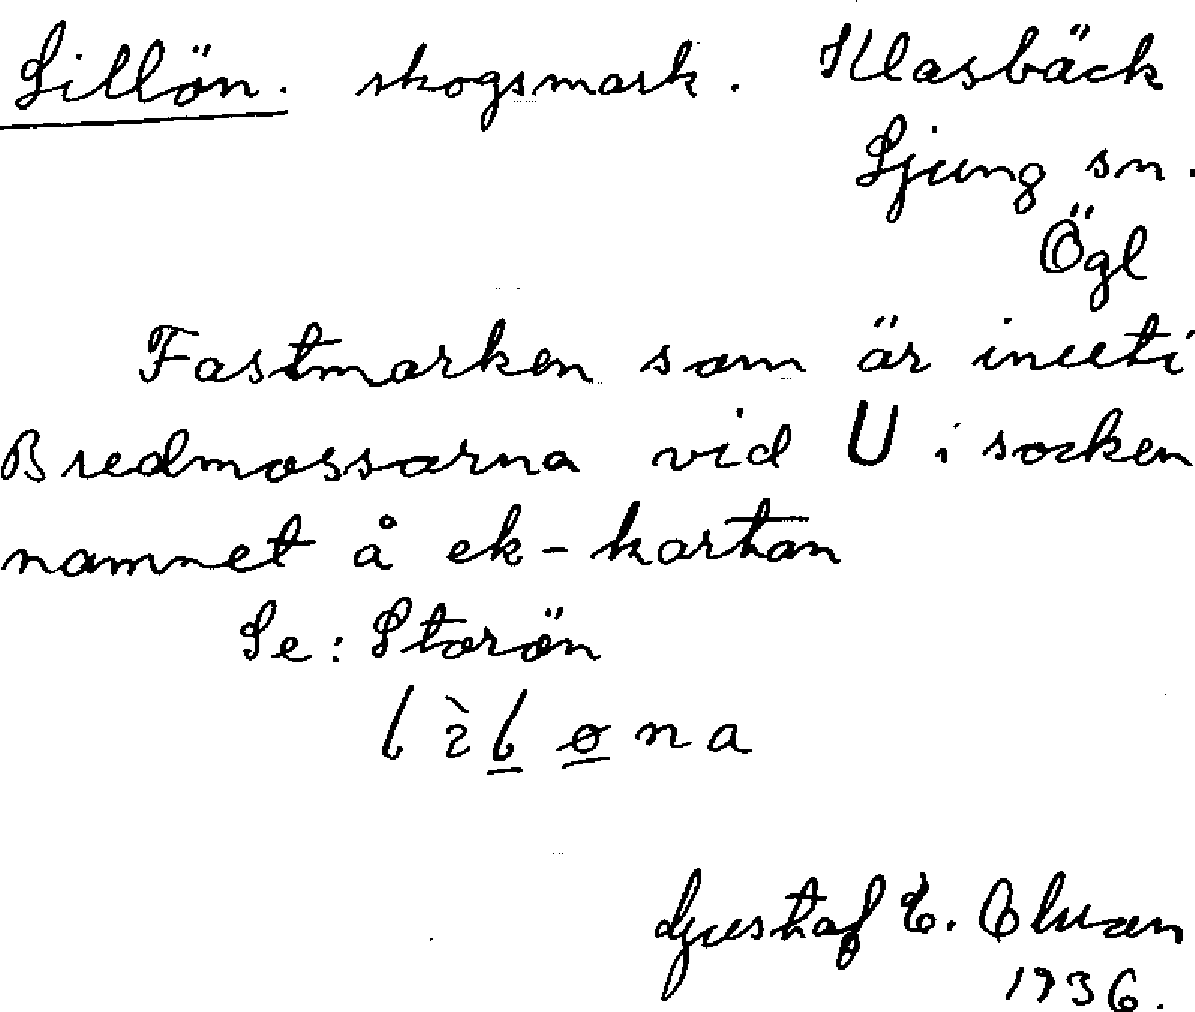 Lillön. skogsmark. Klasbäck
Ljung sn.
Ögl
Fastmarken som är inuti
Bredmossarna vid U i socken
namnet å ek-kartan
Se: Storön
Gustaf E.
1936.